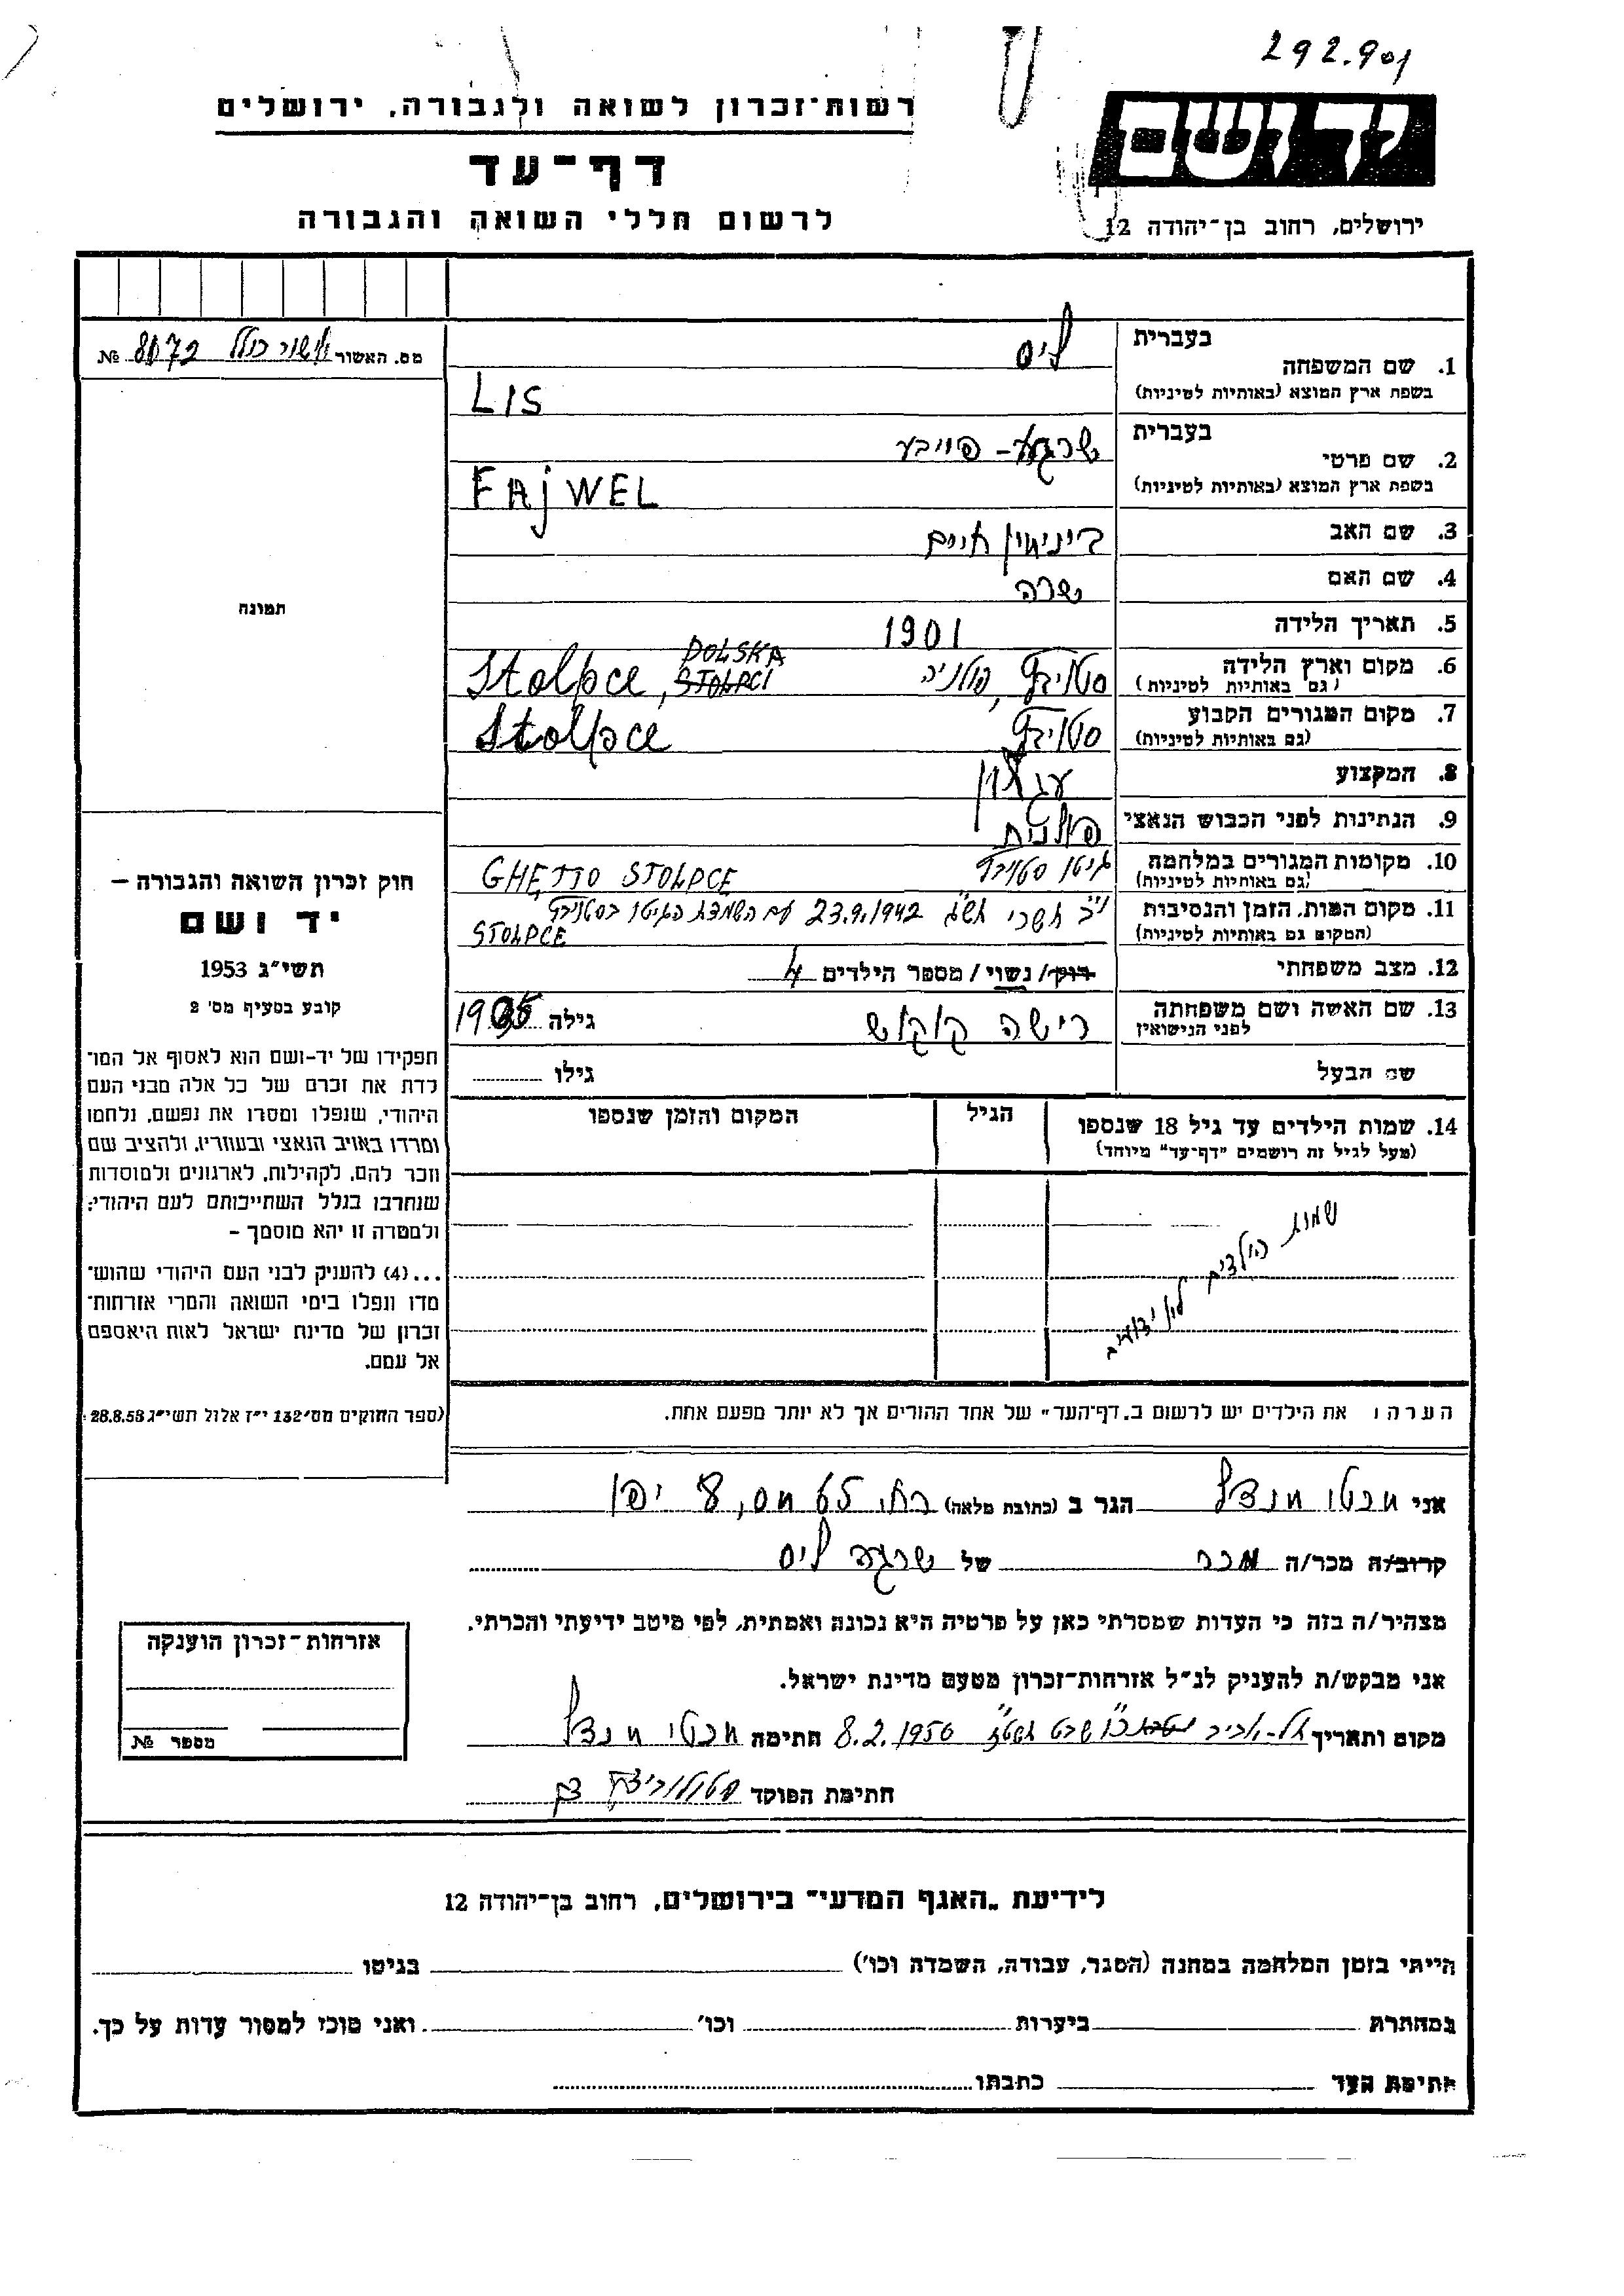 292.901
רשות־זכרון לשואה ולגבורה, ירושלים
יד ושם
דף־עד
לרשום חללי השואה והגבורה
ירושלים, רחוב בן־יהודה 12
מס. האשור אישור כולל 8072 №
1. שם המשפחה
בעברית ליס
בשפת ארץ המוצא (באותיות לטיניות) LIS
2. שם פרטי
בעברית שרגא – פייבע
בשפת ארץ המוצא (באותיות לטיניות) FAjWEL
3. שם האב בינימין חיים
4. שם האם שרה
5. תאריך הלידה 1901
6. מקום וארץ הלידה (גם באותיות לטיניות) סטויבץ, פולניה Stolpce, POLSKA STOLPCI
7. מקום המגורים הקבוע (גם באותיות לטיניות) סטויבץ Stolpce
8. המקצוע עגלון
9. הנתינות לפני הכבוש הנאצי פולנית
10. מקומות המגורים במלחמה (גם באותיות לטיניות) גיטו סטויבץ GHETTO STOLPCE
11. מקום המות, הזמן והנסיבות (המקום גם באותיות לטיניות) י"ב תשרי תש"ג 23.9.1942 עם השמדת הגיטו בסטויבץ STOLPCE
12. מצב משפחתי רוק/ נשוי/ מספר הילדים 4
13. שם האשה ושם משפחתה לפני הנישואין רישה קוקוש גילה 1905
שם הבעל גילו
14. שמות הילדים עד גיל 18 שנספו (מעל לגיל זה רושמים "דף־עד" מיוחד) הגיל המקום והזמן שנספו
שמות הילדים לא ידועים
הערה: את הילדים יש לרשום ב„דף־העד" של אחד ההורים אך לא יותר מפעם אחת.
תמונה
חוק זכרון השואה והגבורה –
יד ושם
תשי"ג 1953
קובע בסעיף מס' 2
תפקידו של יד-ושם הוא לאסוף אל המו־
לדת את זכרם של כל אלה מבני העם
היהודי, שנפלו ומסרו את נפשם, נלחמו
ומרדו באויב הנאצי ובעוזריו, ולהציב שם
וזכר להם, לקהילות, לארגונים ולמוסדות
שנחרבו בגלל השתייכותם לעם היהודי;
ולמטרה זו יהא מוסמך –
...(4) להעניק לבני העם היהודי שהוש־
מדו ונפלו בימי השואה והמרי אזרחות־
זכרון של מדינת ישראל לאות היאספם
אל עמם.
(ספר החוקים מס' 132 י"ז אלול תשי"ג 28.8.53)
אני מנדל הגר ב (כתובת מלאה) רח. 65 מס, 8 יפו
קרוב/ה מכר/ה מכר של שרגא ליס
מצהיר/ה בזה כי העדות שמסרתי כאן על פרטיה היא נכונה ואמתית, לפי מיטב ידיעתי והכרתי.
אני מבקש/ת להעניק לנ"ל אזרחות־זכרון מטעם מדינת ישראל.
מקום ותאריך תל-אביב שבט 8.2.1956 חתימה מנדל
חתימת הפוקד
אזרחות־זכרון הוענקה
מספר №
לידיעת „האגף המדעי" בירושלים, רחוב בן־יהודה 12
הייתי בזמן המלחמה במחנה (הסגר, עבודה, השמדה וכו') בגיטו
במחתרת ביערות וכו' ואני מוכן למסור עדות על כך.
חתימת העד כתבתו